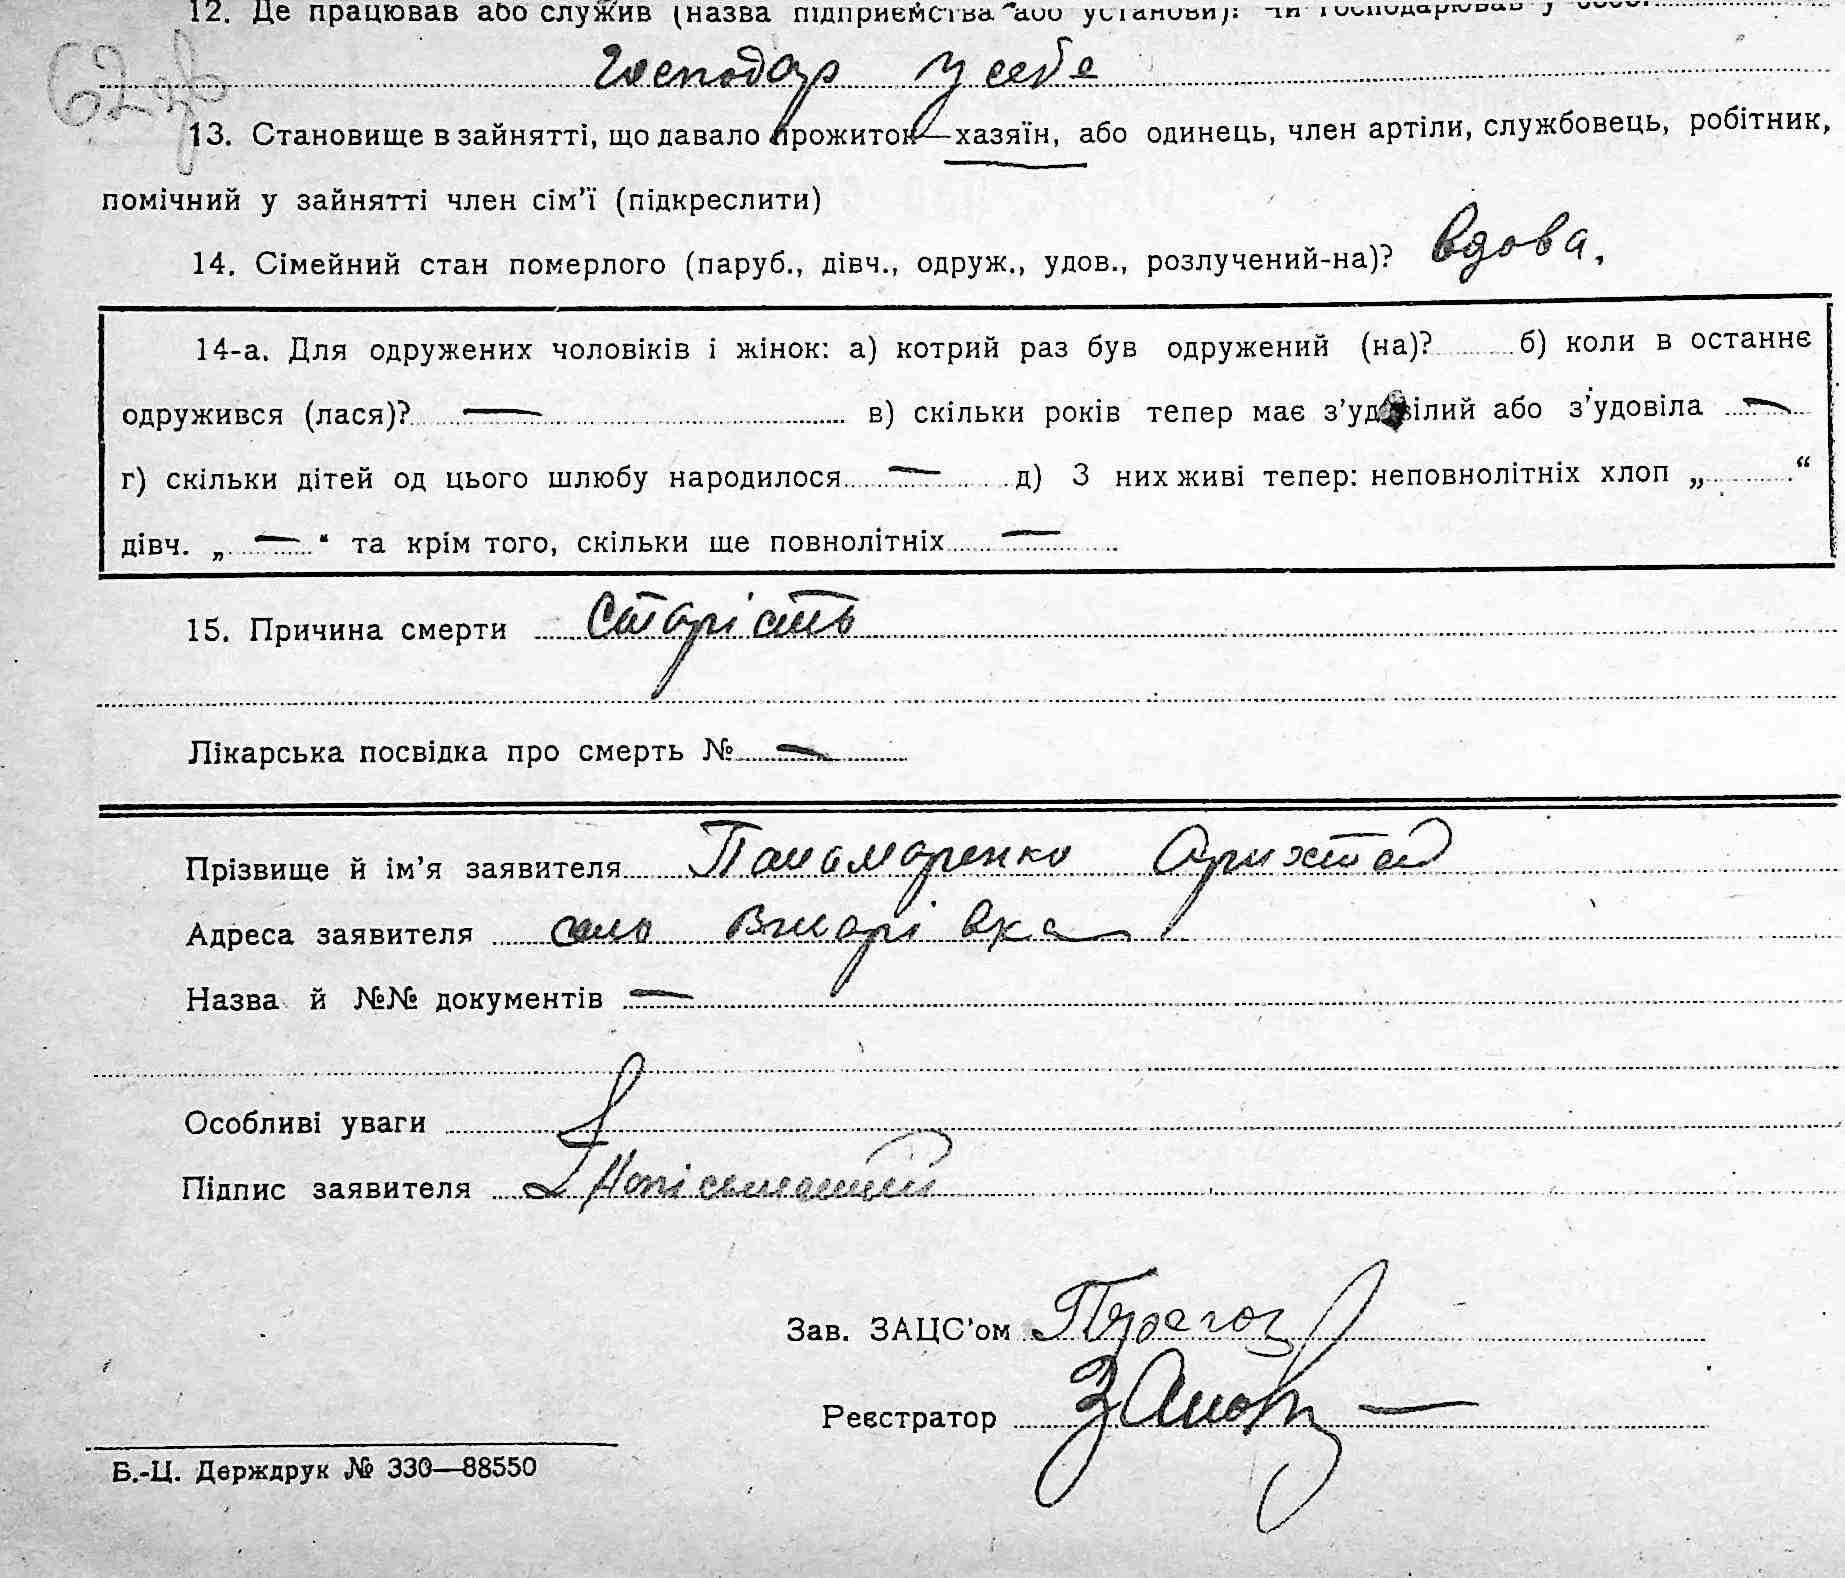 12. Де працював або служив (назва підприємства або установи): чи господарював у себе.
Господар у себе
62зв
13. Становище в зайнятті, що давало прожиток—хазяїн, або одинець, член артіли, службовець, робітник,
помічний у зайнятті член сім'ї (підкреслити)
14. Сімейний стан померлого (паруб., дівч., одруж., удов., розлучений-на)? Вдова.
14-а. Для одружених чоловіків і жінок: а) котрий раз був одружений (на)? б) коли в останнє
одружився (лася)? — в) скільки років тепер має з'удовілий або з'удовіла —
г) скільки дітей од цього шлюбу народилося — д) З них живі тепер: неповнолітніх хлоп „ “
дівч. „ — “ та крім того, скільки ще повнолітніх —
15. Причина смерти Старість
Лікарська посвідка про смерть № —
Прізвище й ім'я заявителя Панамаренко
Адреса заявителя село
Назва й №№ документів —
Особливі уваги
Підпис заявителя
Зав. ЗАЦС'ом
Реєстратор
Б.-Ц. Держдрук № 330—88550